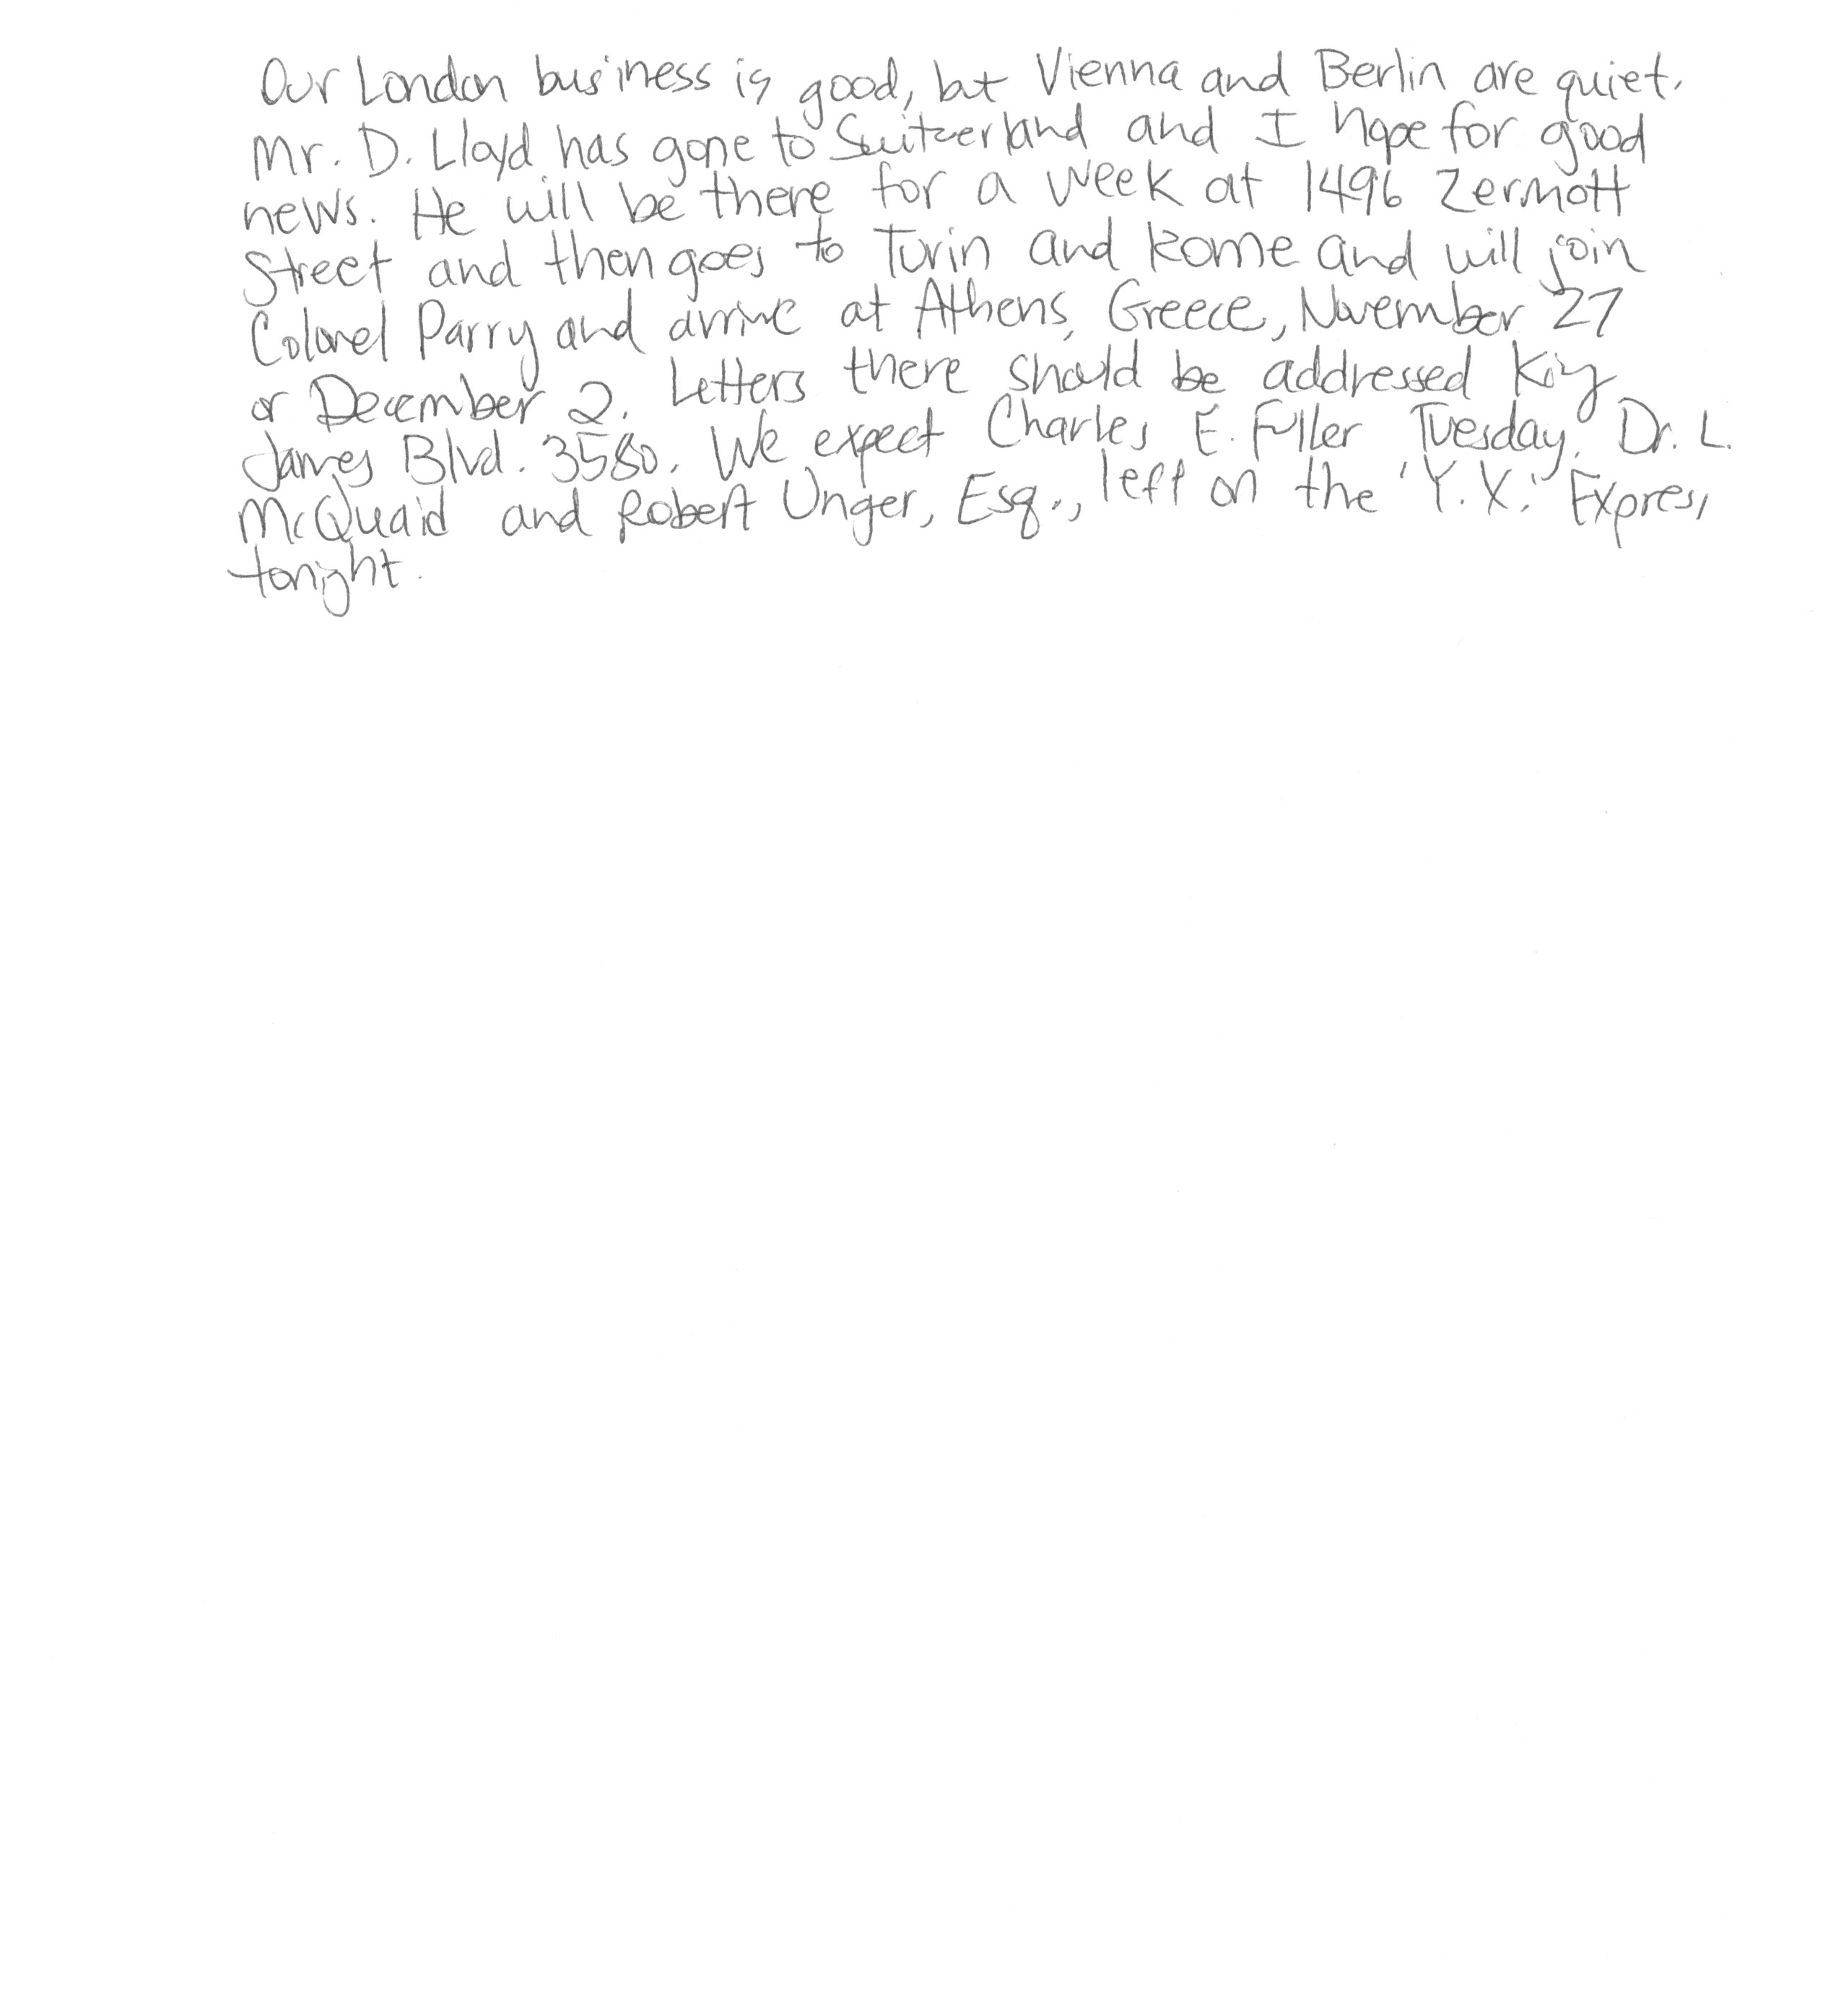 Our London business is good, but Vienna and Berlin are quiet.
Mr. D. Lloyd has gone to Switzerland and I hope for good
news. He will be there for a week at 1496 Zermott
Street and then goes to Turin and Rome and will join
Colonel Parry and arrive at Athens, Greece, November 27
or December 2. Letters there should be addressed King
James Blvd. 3580. We expect Charles E. Fuller Tuesday. Dr. L.
McQuaid and Robert Unger, Esq., left on the "Y.X." Express
tonight.